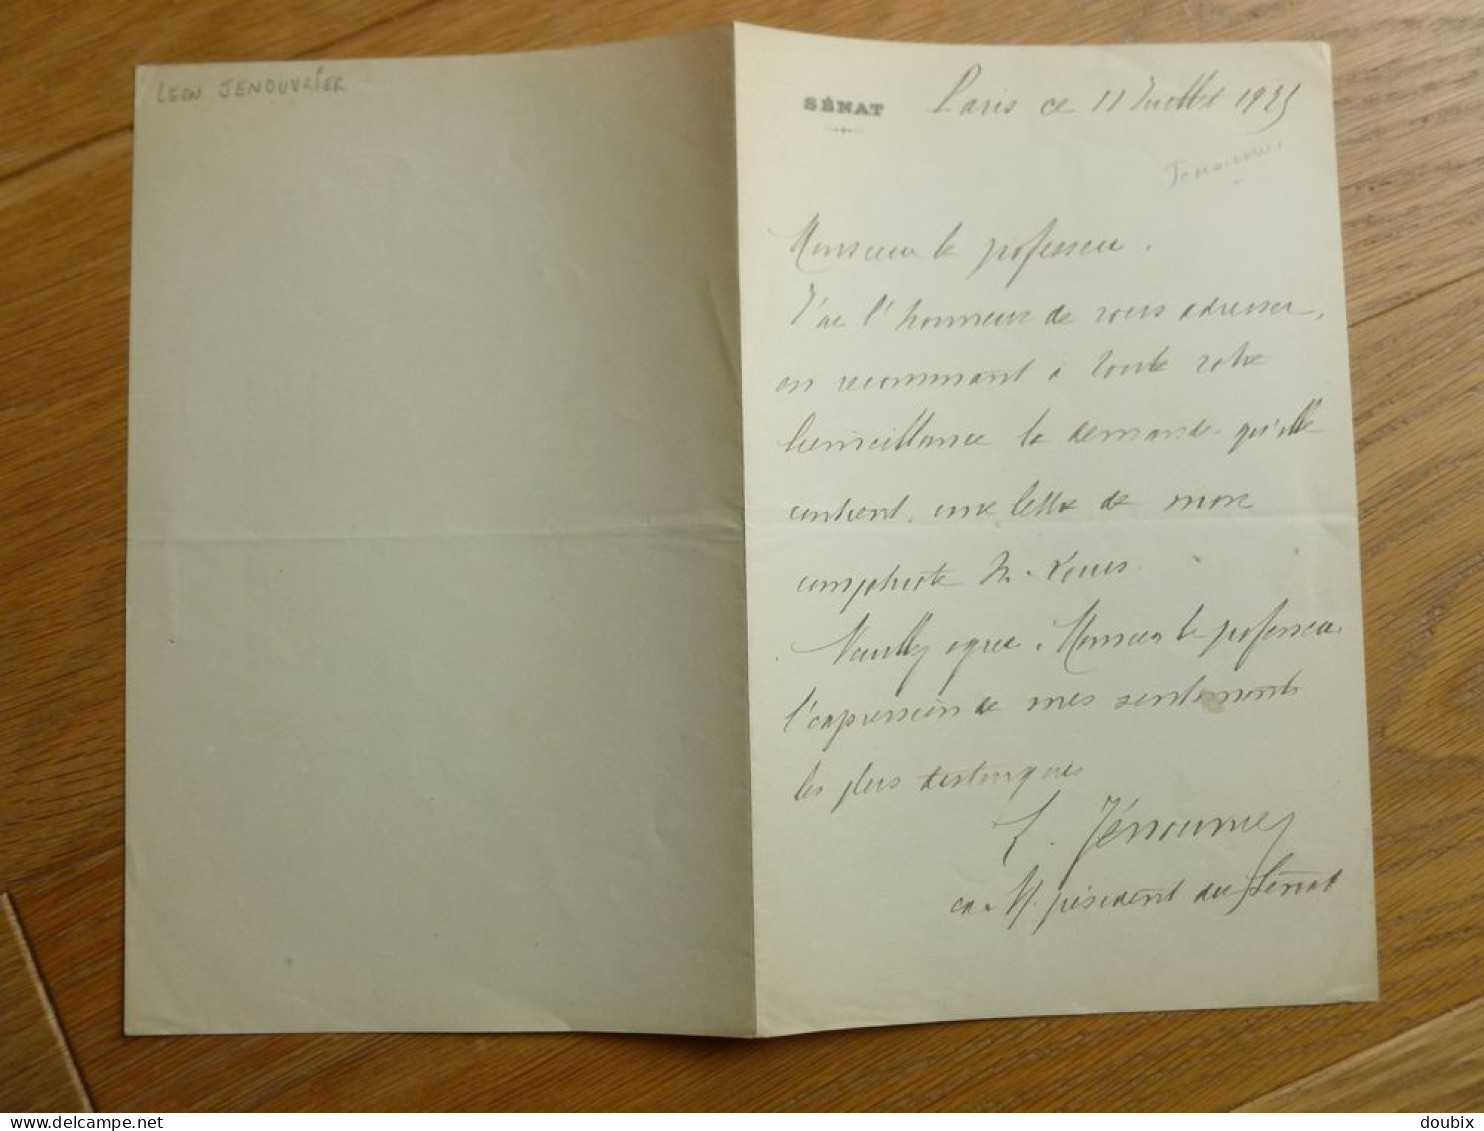 LEON JENOUVRIER
SÉNAT
Paris ce 11 Juillet 1925
Jenouvrier
Monsieur le professeur.
J'ai l'honneur de vous adresser,
en recommandant à toute votre
bienveillance la demande qu'elle
contient, une lettre de mon
compatriote M. Louis.
Veuillez agréer, Monsieur le professeur,
l'expression de mes sentiments
les plus distingués
L. Jénouvrier
président du Sénat
delcampe.net
doubix